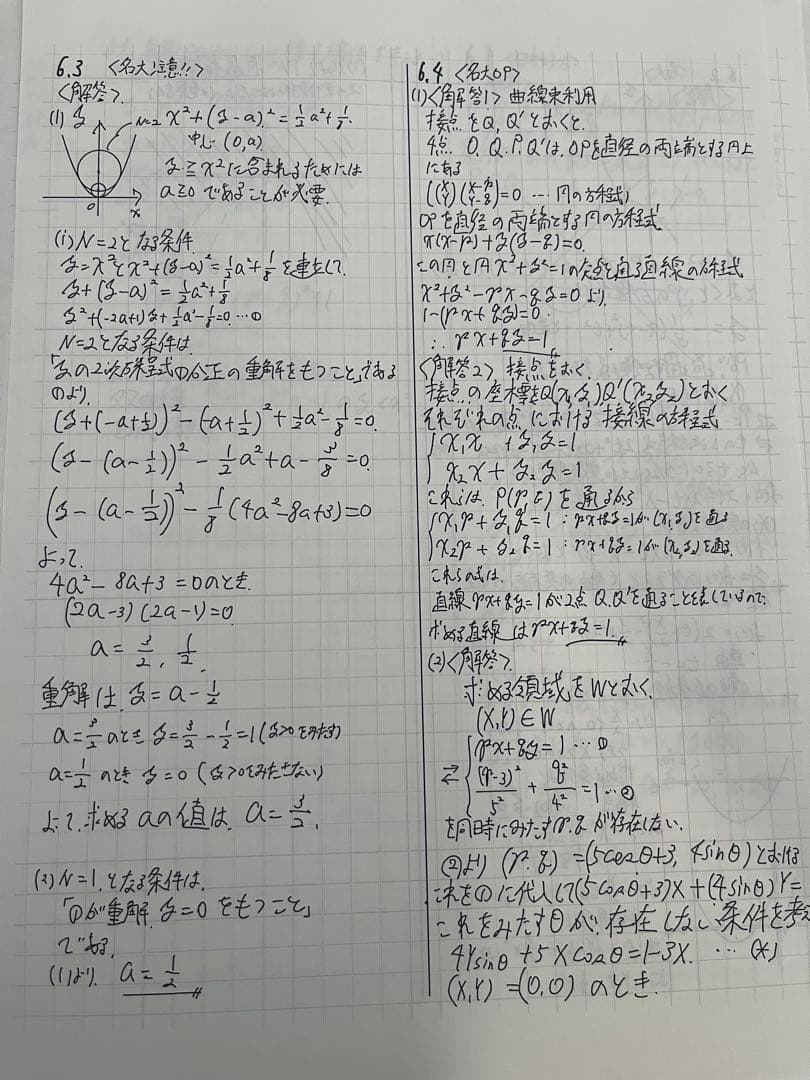 6.3 <名大注意!!>
<解答>.
(1) y
N=2
x²+(y-a)²=½a²+⅛.
中心 (0,a)
y≧x²に含まれるためには
a≧0 であることが必要.
0
x
(i) N=2となる条件.
y=x²とx²+(y-a)²=½a²+⅛を連立して.
y+(y-a)²=½a²+⅛
y²+(-2a+1)y+½a²-⅛=0.…①
N=2となる条件は.
「yの2次方程式①が正の重解をもつこと」である
①より.
(y+(-a+½))²-(-a+½)²+½a²-⅛=0.
(y-(a-½))²-½a²+a-3/8=0.
(y-(a-½))²-⅛(4a²-8a+3)=0
よって.
4a²-8a+3=0のとき.
(2a-3)(2a-1)=0
a=3/2, 1/2.
重解は. y=a-½
a=3/2のとき y=3/2-1/2=1(y>0をみたす)
a=½のとき y=0(y>0をみたさない)
よって.求めるaの値は. a=3/2.
(2) N=1.となる条件は.
「①が重解.y=0をもつこと」
である.
(1)より. a=½
6.4 <名大OP>
(1)<解答1>曲線束利用
接点をQ,Q'とおくと.
4点 O.Q.P.Q'は.OPを直径の両端とする円上
にある
((x y)(x-p y-q)=0 … 円の方程式)
OPを直径の両端とする円の方程式
x(x-p)+y(y-q)=0.
この円と円x²+y²=1の交点を通る直線の方程式
x²+y²-px-qy=0より.
1-(px+qy)=0.
∴ px+qy=1
<解答2> 接点をおく.
接点の座標をQ(x₁y₁)Q'(x₂y₂)とおく
それぞれの点における接線の方程式
{x₁x+y₁y=1
{x₂x+y₂y=1
これらは. P(p,q)を通るから
{x₁p+y₁q=1 :px+qy=1が(x₁,y₁)を通る
{x₂p+y₂q=1 :px+qy=1が(x₂,y₂)を通る.
これらの式は.
直線px+qy=1が2点Q.Q'を通ることを表しているので.
求める直線はpx+qy=1.
(2)<解答>.
求める領域をWとおく.
(X,Y)∈W
⇄ {px+qy=1…①
{(p-3)²/5²+q²/4²=1…②
を同時にみたすp.qが存在しない.
②より (p.q)=(5cosθ+3, 4sinθ)とおける
これを①に代入して(5cosθ+3)X+(4sinθ)Y=
これをみたすθが.存在しない条件を考
4Ysinθ+5Xcosθ=1-3X. …(*)
(X,Y)=(0,0)のとき.